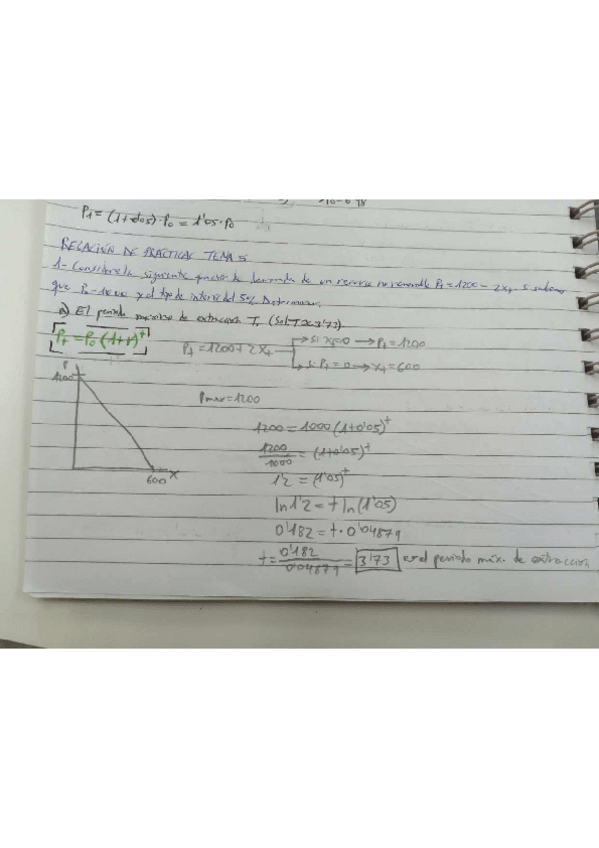 P1 = (1+0'05)·P0 = 1'05·P0
RELACIÓN DE PRACTICAS TEMA 5
1- Considere la siguiente función de demanda de un recurso no renovable Pt = 1200 - 2xt si sabemos
que P0 = 1000 y el tipo de interés del 5%. Determinar:
a) El periodo máximo de extracción T, (Sol: T≈3'73)
Pt = P0(1+r)^t
Pt = 1200+2xt
si xt=0 → Pt = 1200
si Pt = 0 → xt = 600
P
1200
600 x
Pmax = 1200
1200 = 1000(1+0'05)^t
1200/1000 = (1+0'05)^t
1'2 = (1'05)^t
ln 1'2 = t ln(1'05)
0'182 = t · 0'04879
t = 0'182/0'04879 = 3'73 es el periodo máx. de extracción